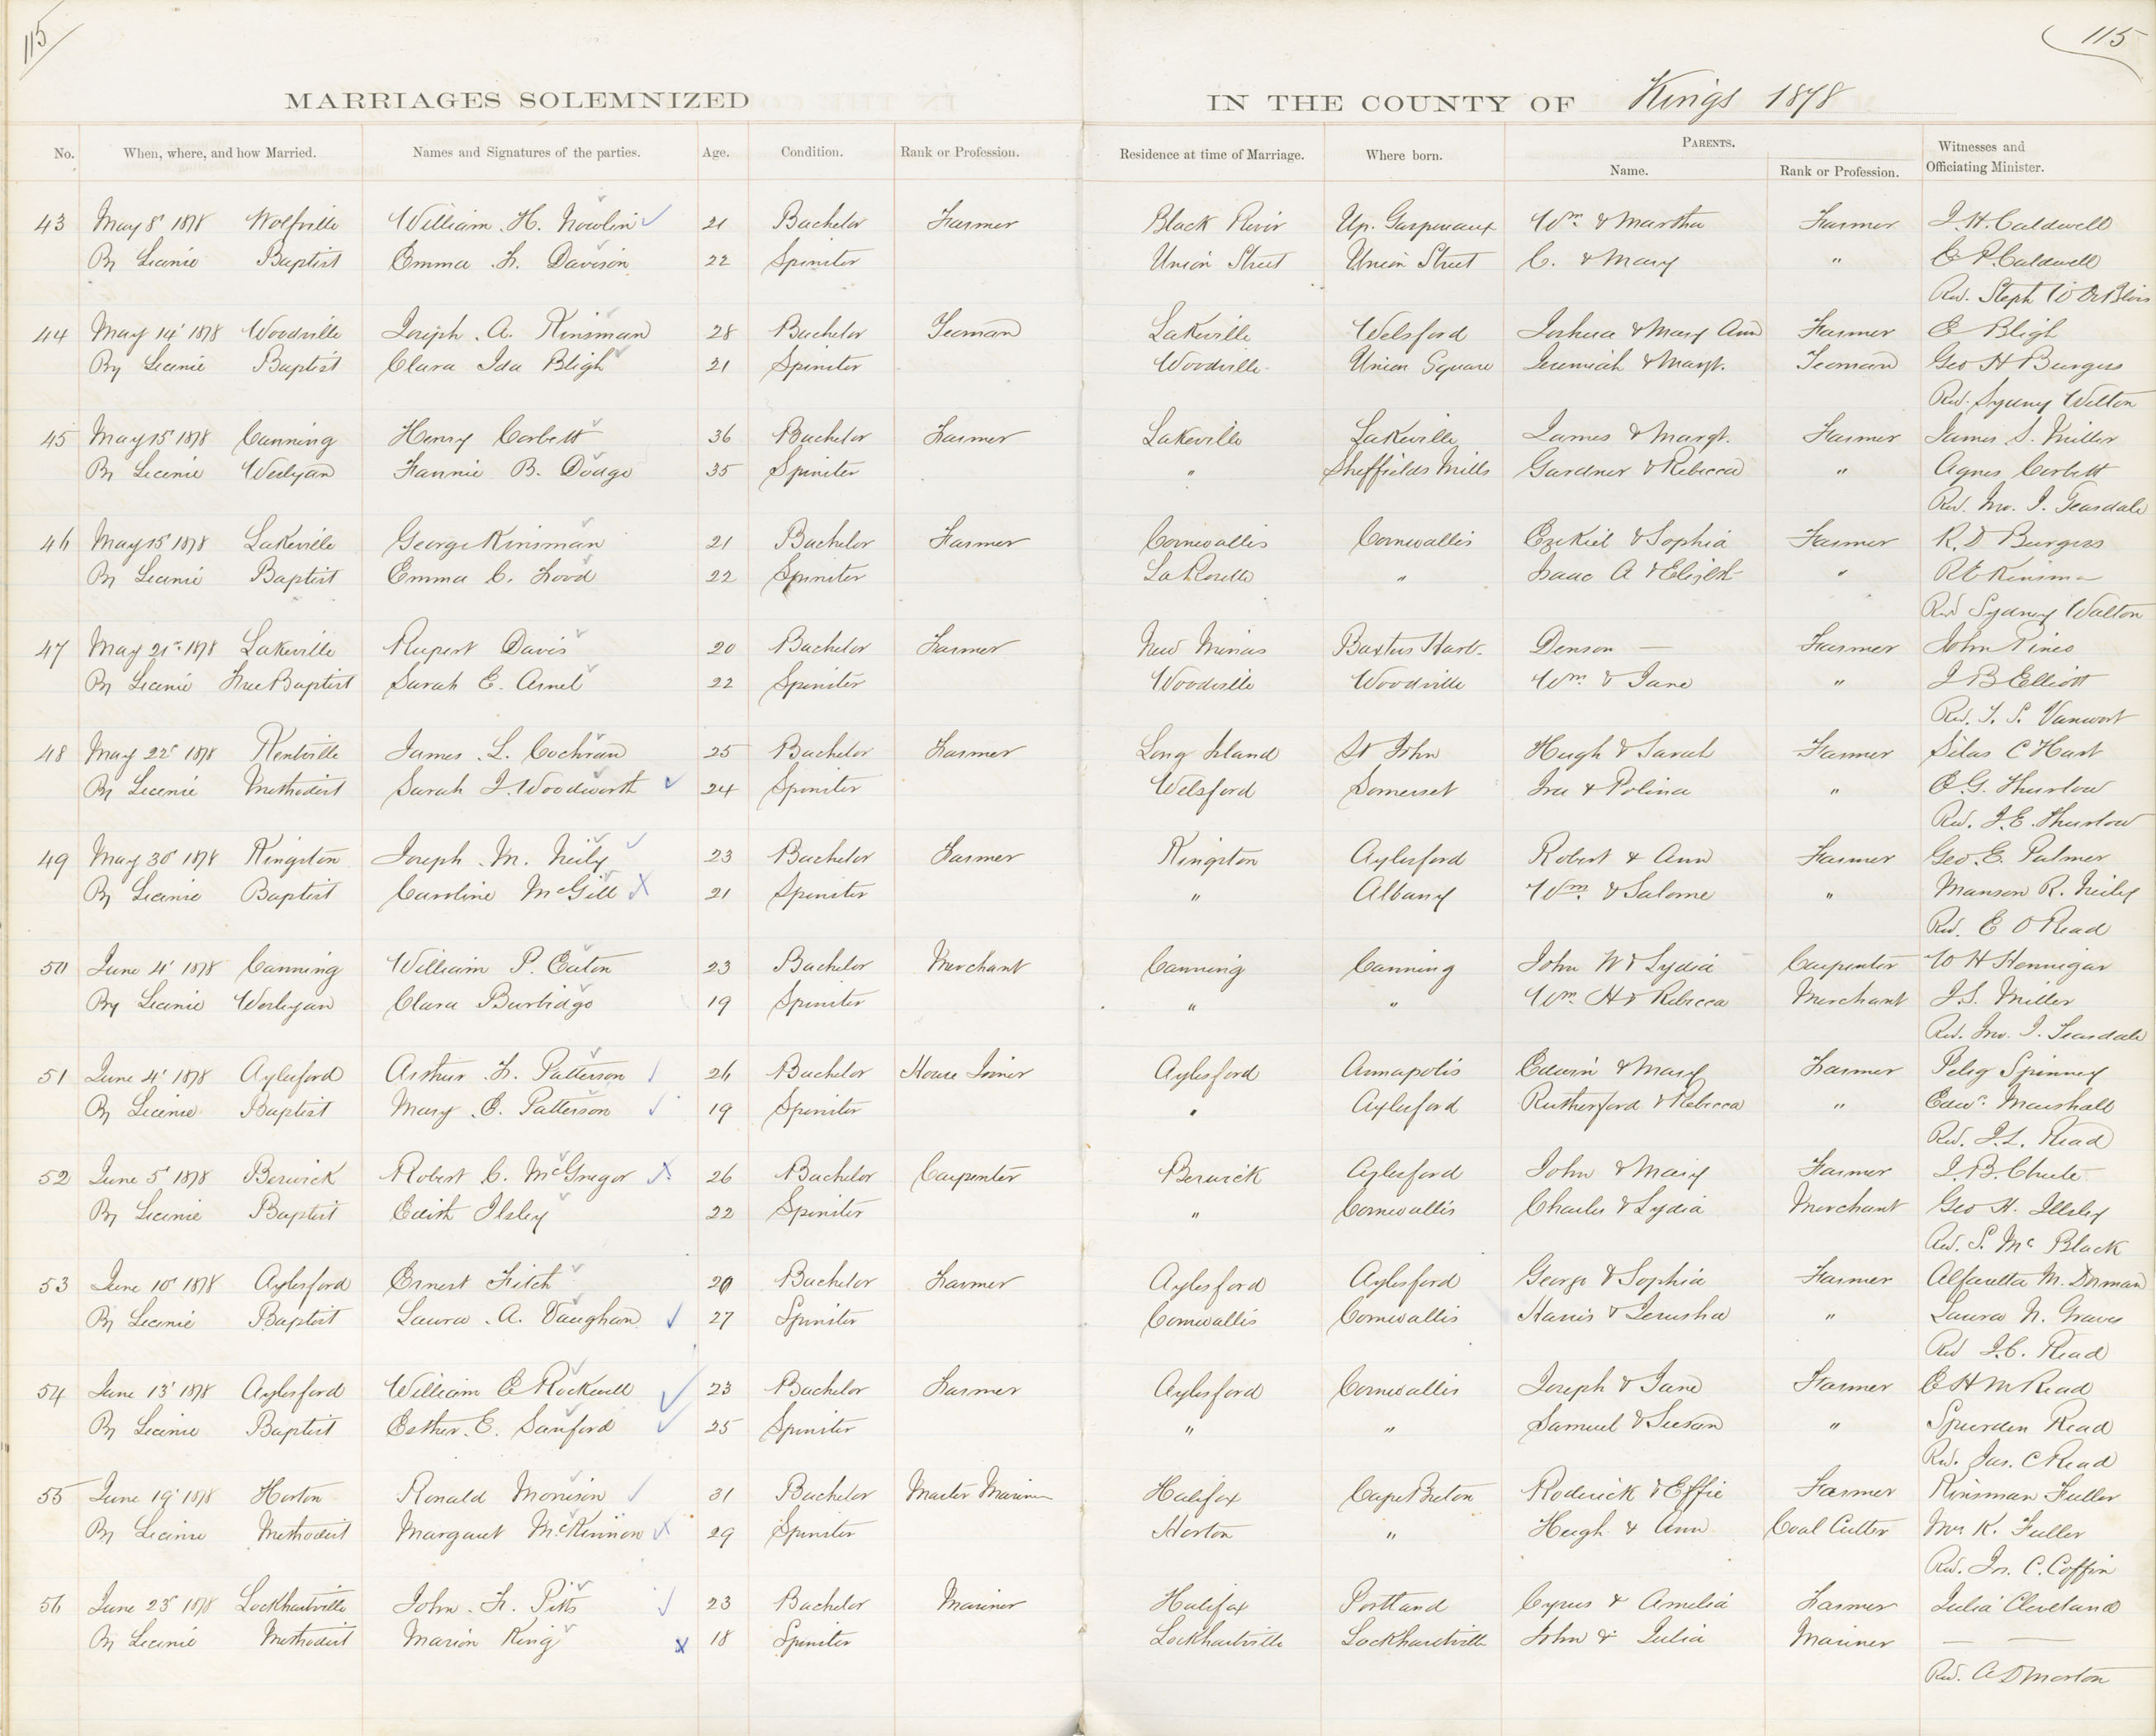 115
115
MARRIAGES SOLEMNIZED IN THE COUNTY OF Kings 1878
No. When, where, and how Married. Names and Signatures of the parties. Age. Condition. Rank or Profession. Residence at time of Marriage. Where born. PARENTS. Name. Rank or Profession. Witnesses and Officiating Minister.
43 May 8' 1878 Wolfville William H. Nowlin 21 Bachelor Farmer Black River Up. Gaspereaux Wm & Martha Farmer J. H. Caldwell
By Licence Baptist Emma F. Davison 22 Spinster Union Street Union Street C. & Mary " E P Caldwell
Rev. Steph W DeBlois
44 May 14' 1878 Woodville Joseph A. Kinsman 28 Bachelor Yeoman Lakeville Welsford Joshua & Mary Ann Farmer E Bligh
By Licence Baptist Clara Ida Bligh 21 Spinster Woodville Union Square Jeremiah & Margt. Yeoman Geo H Burgess
Rev. Sydney Welton
45 May 15' 1878 Canning Henry Corbett 36 Bachelor Farmer Lakeville Lakeville James & Margt. Farmer James S. Miller
By Licence Wesleyan Fannie B. Dodge 35 Spinster " Sheffields Mills Gardner & Rebecca " Agnes Corbett
Rev. Jno. J. Teasdale
46 May 15' 1878 Lakeville George Kinsman 21 Bachelor Farmer Cornwallis Cornwallis Ezekiel & Sophia Farmer R. D Burgess
By Licence Baptist Emma C. Lood 22 Spinster " Isaac A & Elizbt " R E Kinsman
Rev Sydney Walton
47 May 21st 1878 Lakeville Rupert Davis 20 Bachelor Farmer New Minas Baxters Harb. Denson — Farmer John Pineo
By Licence Free Baptist Sarah E. 22 Spinster Woodville Woodville Wm & Jane " J B Elliott
Rev. T. S. Vanwort
48 May 22d 1878 Kentville James L. Cochran 25 Bachelor Farmer Long Island St John Hugh & Sarah Farmer Silas C Hart
By Licence Methodist Sarah J. Woodworth 24 Spinster Welsford Somerset Ira & Polina " E. G. Thurlow
Rev. J. E. Thurlow
49 May 30' 1878 Kingston Joseph M. Neily 23 Bachelor Farmer Kingston Aylesford Robert & Ann Farmer Geo. E. Palmer
By Licence Baptist Caroline McGill 21 Spinster " Albany Wm & Salome " Manson R. Neily
Rev. E O Read
50 June 4' 1878 Canning William P. Eaton 23 Bachelor Merchant Canning Canning John W & Lydia Carpenter W H Hennigar
By Licence Wesleyan Clara Burbidge 19 Spinster " " Wm H & Rebecca Merchant J. S. Miller
Rev. Jno. J. Teasdale
51 June 4' 1878 Aylesford Arthur F. Patterson 26 Bachelor House Joiner Aylesford Annapolis Edwin & Mary Farmer Peleg Spinney
By Licence Baptist Mary E. Patterson 19 Spinster " Aylesford Rutherford & Rebecca " Edwd. Marshall
Rev. J. L. Read
52 June 5' 1878 Berwick Robert C. McGregor 26 Bachelor Carpenter Berwick Aylesford John & Mary Farmer J. B. Chute
By Licence Baptist Edith Ilsley 22 Spinster " Cornwallis Charles & Lydia Merchant Geo H. Illsley
Rev. S. Mc Black
53 June 10' 1878 Aylesford Ernest Fitch 20 Bachelor Farmer Aylesford Aylesford George & Sophia Farmer Alfaretta M. Dorman
By Licence Baptist Laura A. Vaughan 27 Spinster Cornwallis Cornwallis Harris & Jerusha " Laura N. Graves
Rev J. C. Read
54 June 13' 1878 Aylesford William E Rockwell 23 Bachelor Farmer Aylesford Cornwallis Joseph & Jane Farmer E H M Read
By Licence Baptist Esther E. Sanford 25 Spinster " " Samuel & Susan " Spurden Read
Rev. Jas. C Read
55 June 19' 1878 Horton Ronald Morrison 31 Bachelor Master Mariner Halifax Cape Breton Roderick & Effie Farmer Kinsman Fuller
By Licence Methodist Margaret McKinnon 29 Spinster Horton " Hugh & Ann Coal Cutter Mrs K. Fuller
Rev. Js. C. Coffin
56 June 23d 1878 Lockhartville John F. Pitts 23 Bachelor Mariner Halifax Portland Cyrus & Amelia Farmer Julia Cleveland
By Licence Methodist Marion King 18 Spinster Lockhartville Lockhartville John & Julia Mariner — —
Rev. A D Morton